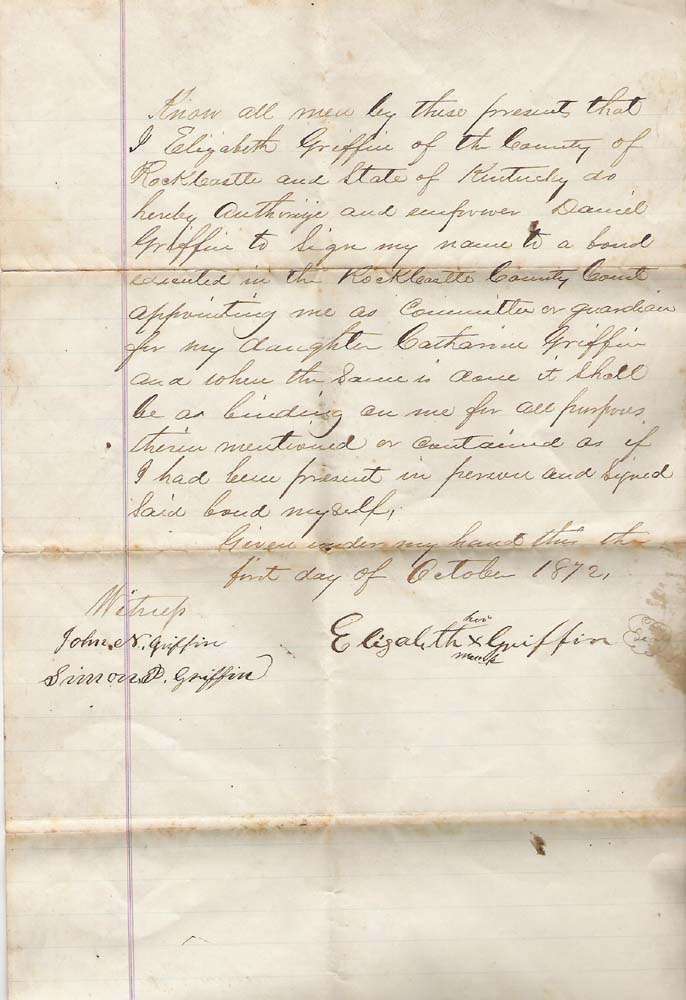 Know all men by these presents that
I Elizabeth Griffin of the County of
RockCastle and State of Kentucky do
hereby Authorize and empower Daniel
Griffin to Sign my name to a bond
executed in the RockCastle County Court
appointing me as Committee or guardian
for my daughter Catharine Griffin
and when the Same is done it Shall
be as binding on me for all purposes
therein mentioned or contained as if
I had been present in person and Signed
Said bond myself,
Given under my hand this the
first day of October 1872,
Witness
her
John N. Griffin Elizabeth x Griffin
mark
Simon P. Griffin